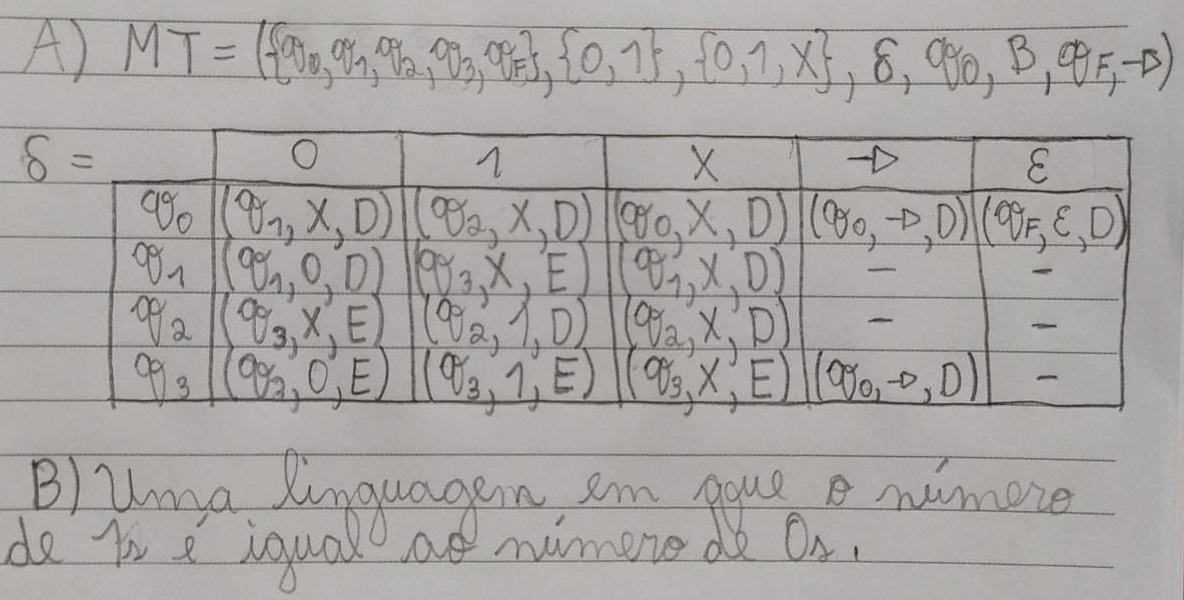 A) MT = ({q₀, q₁, q₂, q₃, qF}, {0, 1}, {0, 1, X}, δ, q₀, B, qF, -▷)
δ = 0 1 X -▷ ε
q₀ (q₁, X, D) (q₂, X, D) (q₀, X, D) (q₀, -▷, D) (qF, ε, D)
q₁ (q₁, 0, D) (q₃, X, E) (q₁, X, D) - -
q₂ (q₃, X, E) (q₂, 1, D) (q₂, X, D) - -
q₃ (q₃, 0, E) (q₃, 1, E) (q₃, X, E) (q₀, -▷, D) -
B) Uma linguagem em que o número
de 1s é igual ao número de 0s.